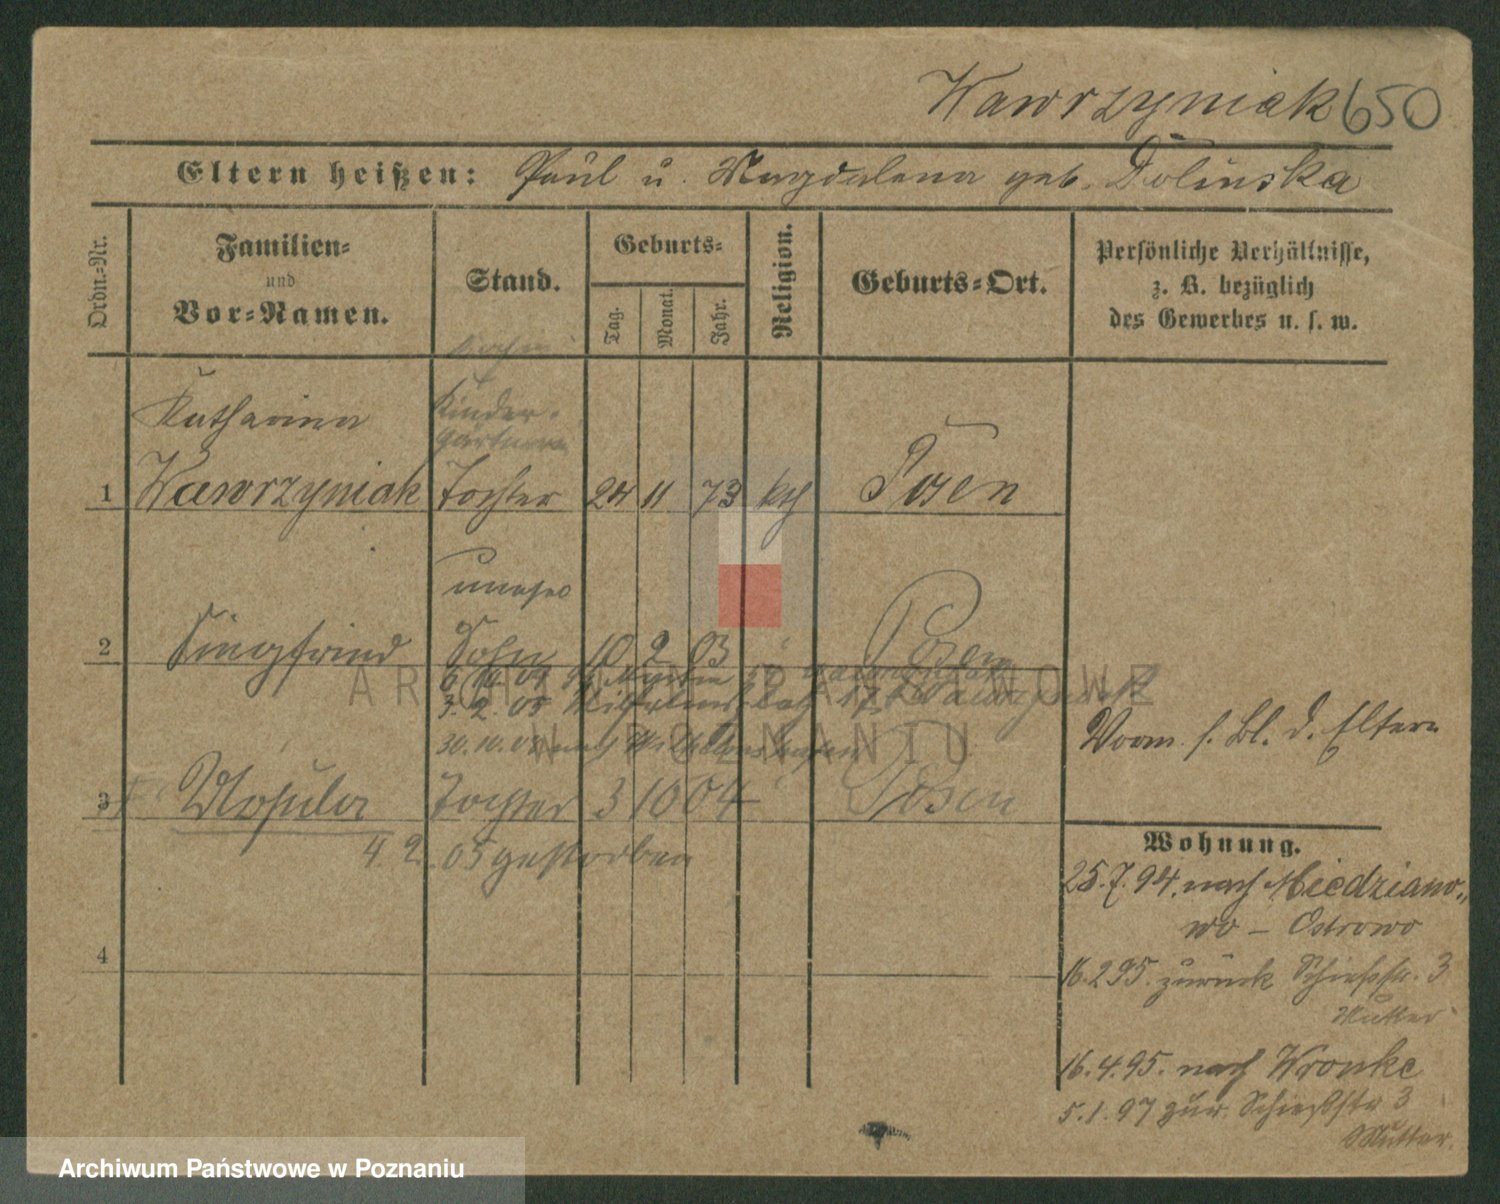 Wawrzyniak 650
Eltern heißen: Paul u. Magdalena geb. Dolinska
Ordn.-Nr.
Familien-
und
Vor-Namen.
Stand.
Geburts-
Tag.
Monat.
Jahr.
Religion.
Geburts-Ort.
Persönliche Verhältnisse,
z. B. bezüglich
des Gewerbes u. s. w.
Katharina
Kinder-
gärtnerin
1 Wawrzyniak Tochter 24 11 73 kth Posen
unehel
2 Siegfried Sohn 10 2 03 Posen
3. 2. 05
30. 10. 04 nach
3 Ursula Tochter 3 10 04 Posen
4. 2. 05 gestorben
4
Vorm. s. Bl. d. Eltern
Wohnung.
25.7.94. nach Miedziano-
wo - Ostrowo
16.2.95. zurück Schießstr. 3
Mutter
16.4.95. nach Wronke
5.1.97 zur. Schießstr 3
Mutter.
ARCHIWUM PAŃSTWOWE
W POZNANIU
Archiwum Państwowe w Poznaniu